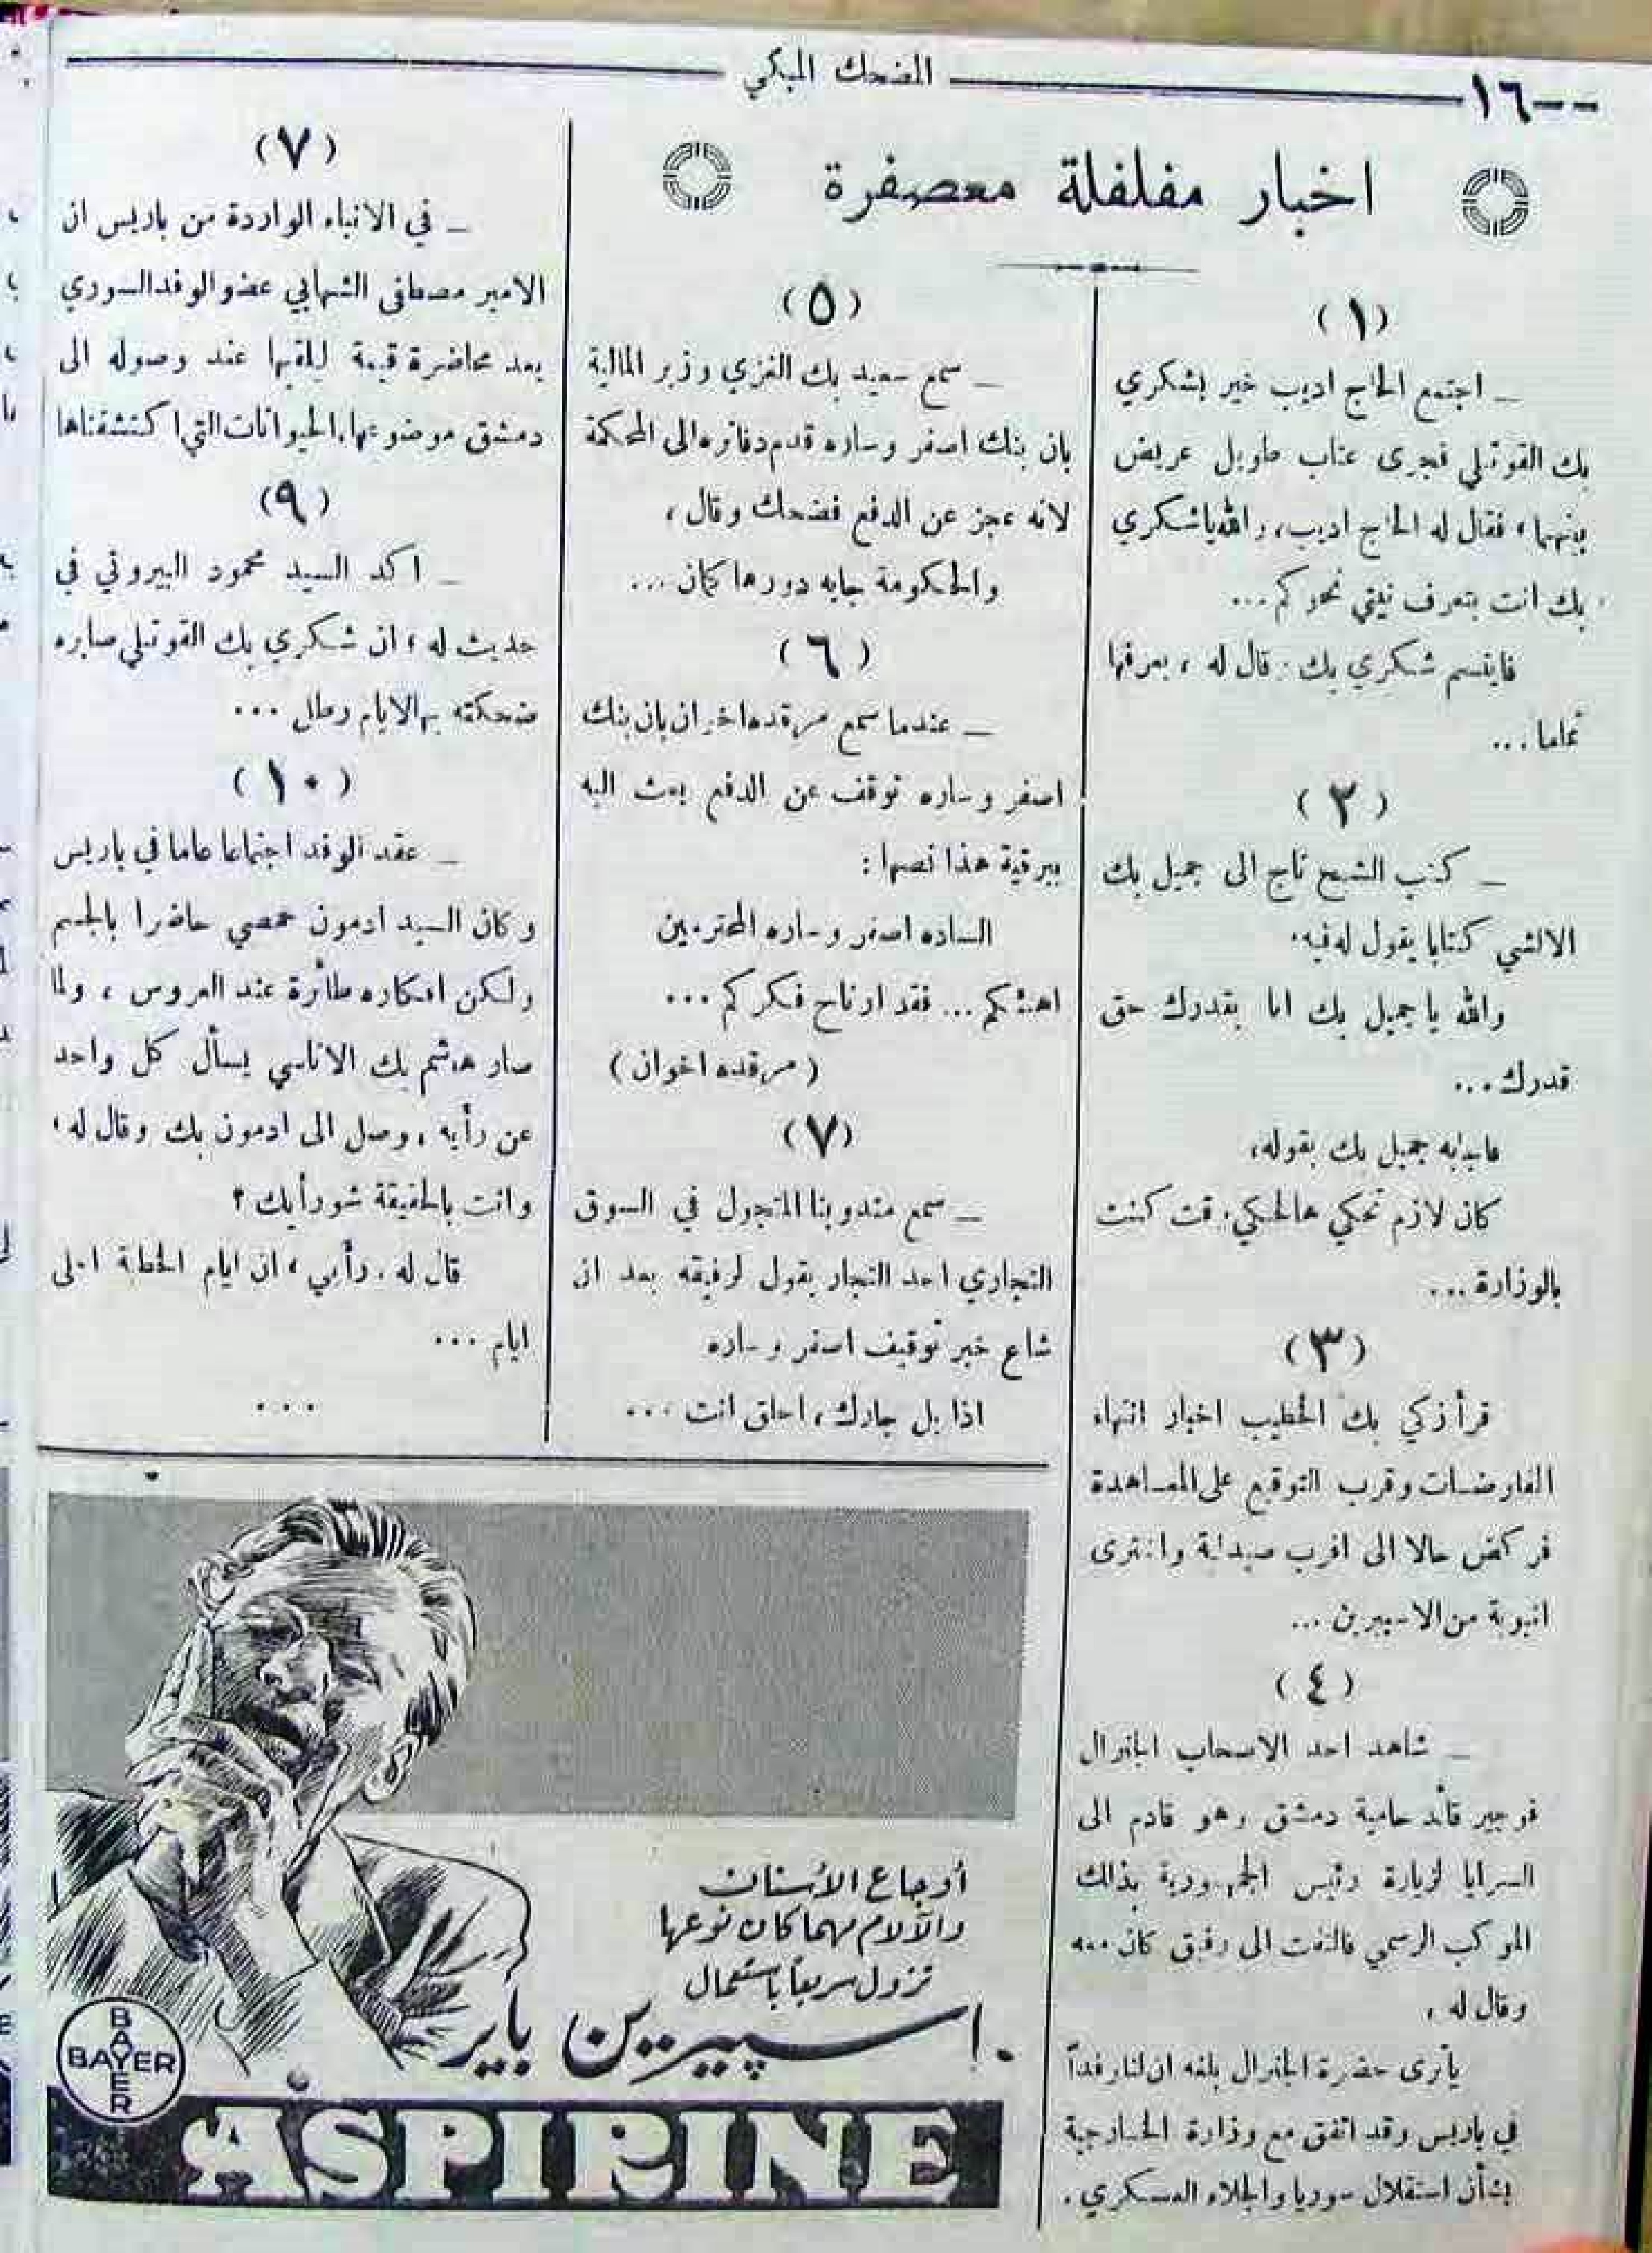 ١٦--
المضحك المبكي
اخبار مفلفلة معصفرة
(١)
_ اجتمع الحاج اديب خير بشكري
بك القوتلي فجرى عتاب طويل عريض
بينهما، فقال له الحاج اديب، والله ياشكري
بك انت بتعرف نيتي نحوكم...
فابتسم شكري بك. قال له، بعرفها
تماما...
(٢)
_ كتب الشيخ تاج الى جميل بك
الالشي كتابا يقول له فيه.
والله يا جميل بك انا بقدرك حق
قدرك...
فاجابه جميل بك بقوله،
كان لازم تحكي هالحكي. قت كنت
بالوزارة...
(٣)
قرأ زكي بك الخطيب اخبار انتهاء
المفاوضات وقرب التوقيع على المعاهدة
فركض حالا الى اقرب صيدلية واشترى
انبوبة من الاسبيرين...
(٤)
_ شاهد احد الاصحاب الجنرال
فوجير قائد حامية دمشق وهو قادم الى
السرايا لزيارة رئيس الجمهورية بذلك
الموكب الرسمي فالتفت الى رفيق كان معه
وقال له،
ياترى حضرة الجنرال بلغه ان لنا وفداً
في باريس وقد اتفق مع وزارة الخارجية
بشأن استقلال سوريا والجلاء العسكري.
(٥)
_ سمع سعيد بك الغزي وزير المالية
بان بنك اصفر وساره قدم دفاتره الى المحكمة
لانه عجز عن الدفع فضحك وقال،
والحكومة جايه دورها كمان...
(٦)
_ عندما سمع مرقده اخوان بان بنك
اصفر وساره توقف عن الدفع بعث اليه
ببرقية هذا نصها:
الساده اصفر وساره المحترمين
اهنئكم... فقد ارتاح فكركم...
(مرقده اخوان)
(٧)
_ سمع مندوبنا المتجول في السوق
التجاري احد التجار يقول لرفيقه بعد ان
شاع خبر توقيف اصفر وساره
اذا بل جارك، احلق انت...
(٧)
_ في الانباء الواردة من باريس ان
الامير مصطفى الشهابي عضو الوفد السوري
يعد محاضرة قيمة ليلقيها عند وصوله الى
دمشق موضوعها، الحيوانات التي اكتشفناها
(٩)
_ اكد السيد محمود البيروتي في
حديث له، ان شكري بك القوتلي صايره
ضحكته بهالايام رطل...
(١٠)
_ عقد الوفد اجتماعا عاما في باريس
وكان السيد ادمون حمصي حاضرا بالجسم
ولكن افكاره طائرة عند العروس، ولما
صار هاشم بك الاتاسي يسأل كل واحد
عن رأيه، وصل الى ادمون بك وقال له،
وانت بالحقيقة شو رأيك؟
قال له. رأيي، ان ايام الخطبة احلى
ايام...
...
أوجاع الأسنان
والآلام مهما كان نوعها
تزول سريعاً باستعمال
اسپيرين باير
BAYER
BAYER
ASPIRINE